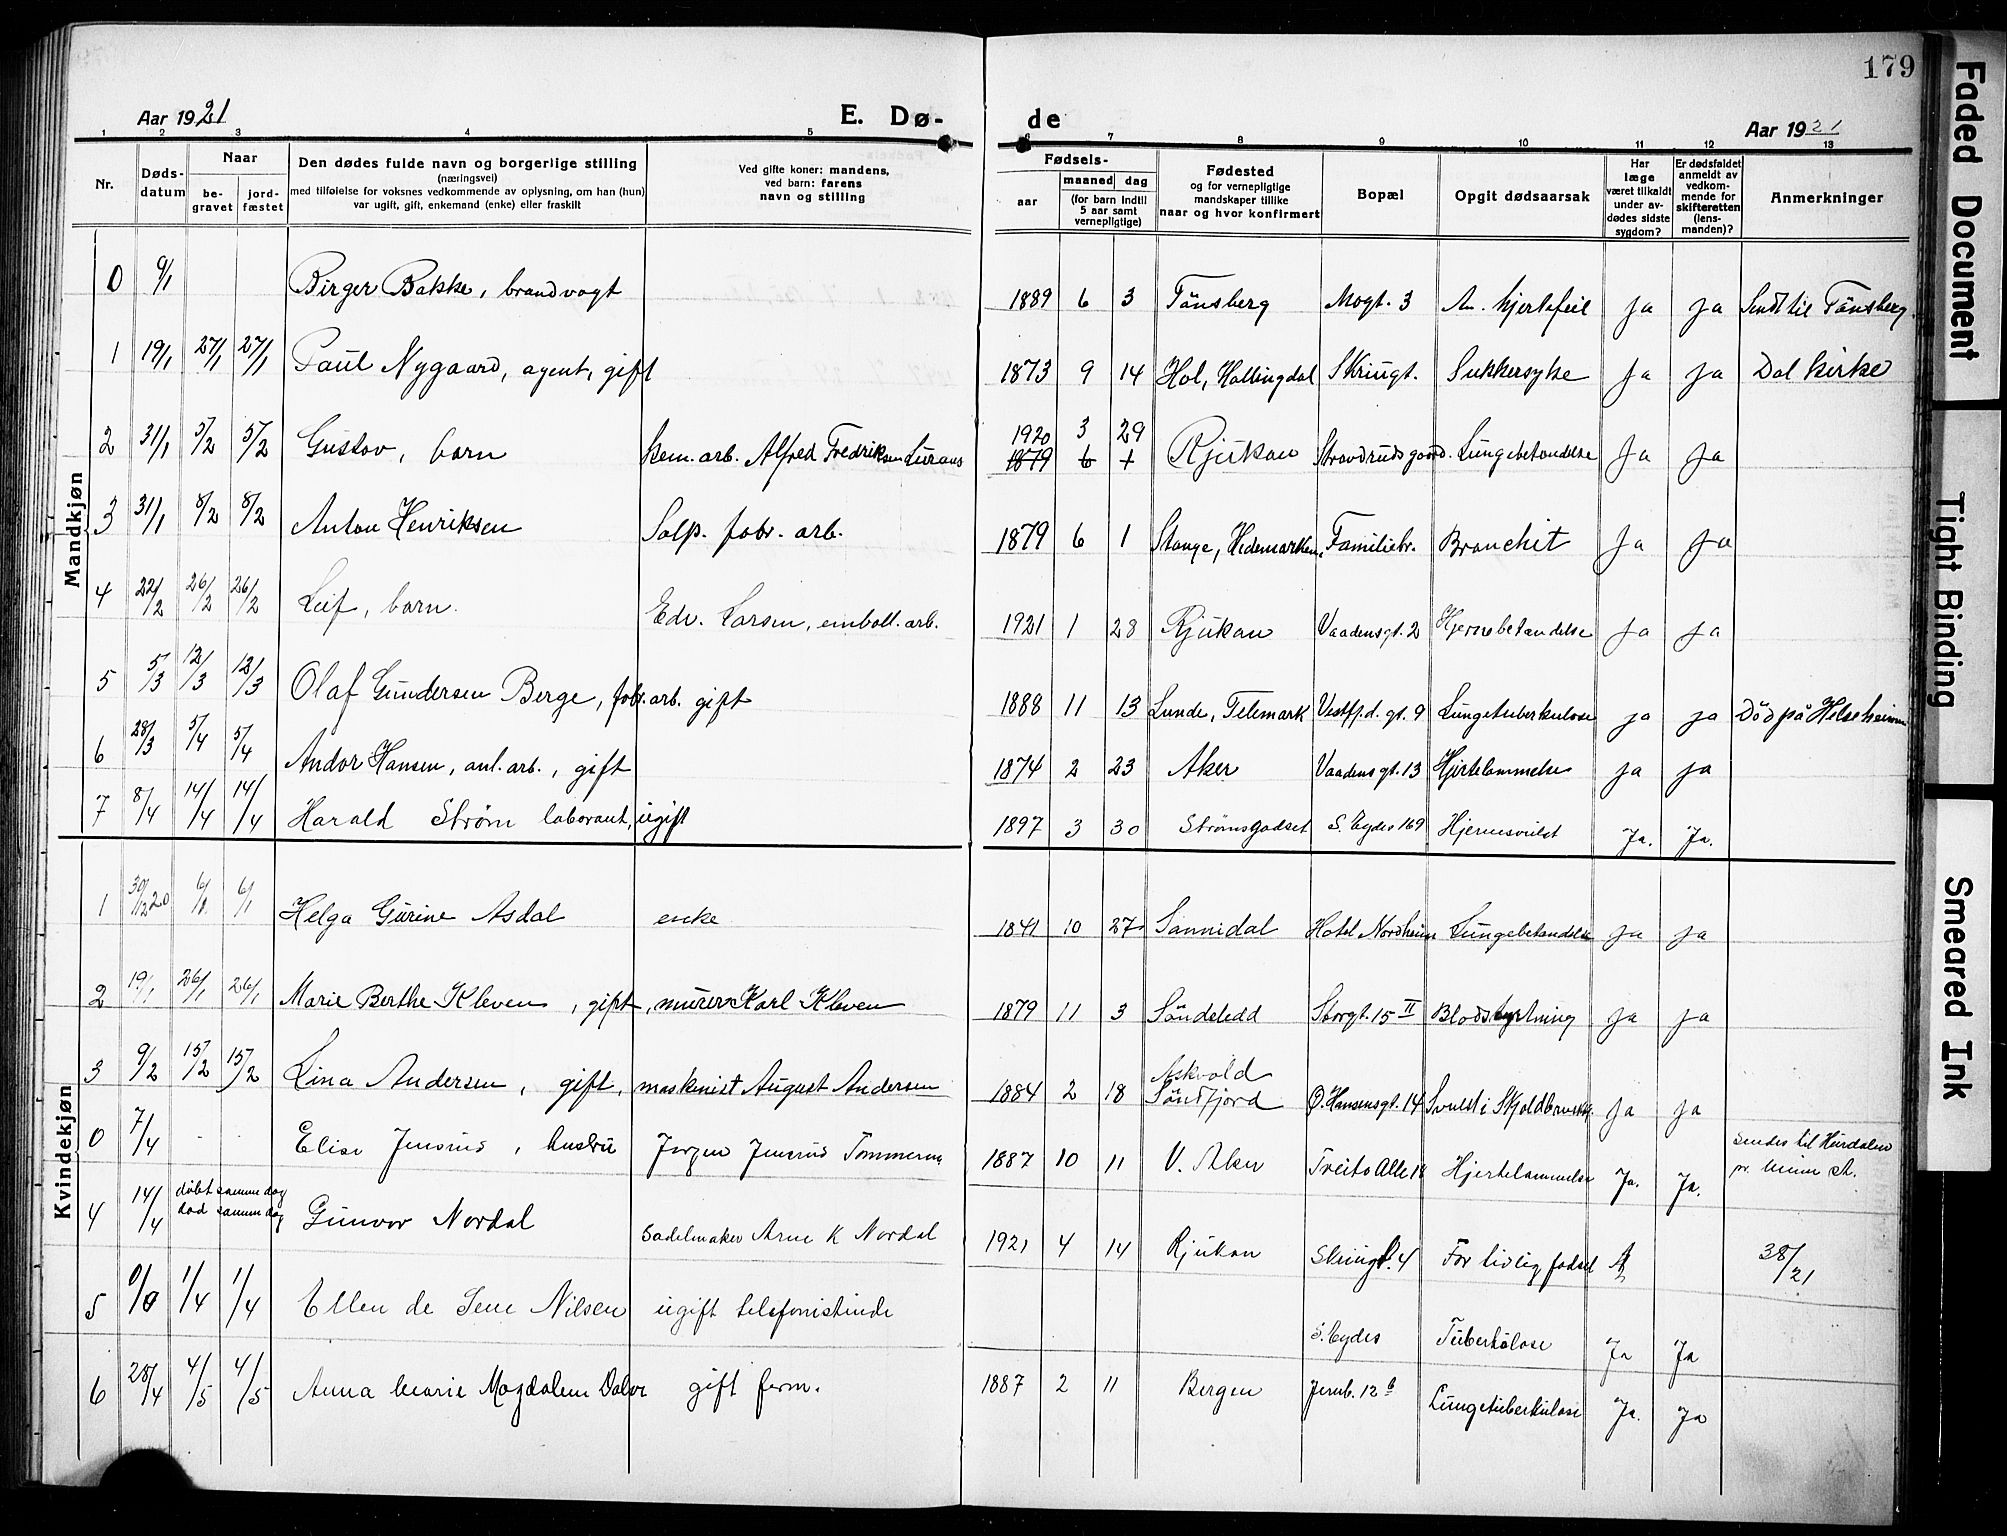 179
Aar 1921
E. Dø-
de
Aar 1921
1 2 3 4 5 6 7 8 9 10 11 12 13
Nr.
Døds-
datum
Naar
be-
gravet
jord-
fæstet
Den dødes fulde navn og borgerlige stilling
(næringsvei)
med tilføielse for voksnes vedkommende av oplysning, om han (hun)
var ugift, gift, enkemand (enke) eller fraskilt
Ved gifte koner: mandens,
ved barn: farens
navn og stilling
Fødsels-
aar
maaned dag
(for barn indtil
5 aar samt
vernepligtige)
Fødested
og for vernepligtige
mandskaper tillike
naar og hvor konfirmert
Bopæl
Opgit dødsaarsak
Har
læge
været tilkaldt
under av-
dødes sidste
sygdom?
Er dødsfaldet
anmeldt av
vedkom-
mende for
skifteretten
(lens-
manden)?
Anmerkninger
Mandkjøn
0 9/1 Birger Bakke, brandvogt 1889 6 3 Tönsberg Mogt. 3 An. hjertefeil Ja Ja Sendt til Tönsberg.
1 19/1 27/1 27/1 Paul Nygaard, agent, gift 1873 9 14 Hol, Hallingdal Skriugt. Sukkersyke Ja Ja Dal kirke
2 31/1 5/2 5/2 Gustav, barn kem. arb. Alfred Fredriksen Luraas 1920 3 29 Rjukan Strandrudsgaard. Lungebetændelse Ja Ja
1879 6 1
3 31/1 8/2 8/2 Anton Henriksen Salp. fabr. arb. 1879 6 1 Stange, Hedemarken. Familiebr. Bronchit Ja Ja
4 22/2 26/2 26/2 Leif, barn. Edv. Larsen, emball. arb. 1921 1 28 Rjukan Vaadensgt. 2 Hjernebetændelse Ja Ja
5 5/3 12/3 12/3 Olaf Gundersen Berge, fabr. arb. gift 1888 11 13 Lunde, Telemark Vestfj.d. gt. 9 Lungetuberkulose Ja Ja Död på Helseheimen
6 28/3 5/4 5/4 Andor Hansen, anl. arb., gift 1874 2 23 Aker Vaadensgt. 13 Hjertelammelse Ja Ja
7 8/4 14/4 14/4 Harald Strøm laborant, ugift 1897 3 30 Strømsgodset S. Eydes 169 Hjernesvulst Ja. Ja.
Kvindekjøn
1 30/12 20 6/1 6/1 Helga Gurine Asdal enke 1841 10 27 Sannidal Hotel Nordheim Lungebetændelse Ja Ja
2 19/1 26/1 26/1 Marie Berthe Kleven, gift, murer Karl Kleven 1879 11 3 Söndeledd Storgt. 15 II Blodstyrtning Ja Ja
3 9/2 15/2 15/2 Lina Andersen, gift, maskinist August Andersen 1884 2 18 Askvold Söndfjord O. Hansensgt. 14 Svulst i Skjoldbruskkj. Ja Ja
0 7/4 Elise Jensrus, hustru Jørgen Jensrus Tømmerm. 1887 10 11 V. Aker Treito Alle 18 Hjertelammelse Ja. Ja. Sendes til Hurdalen
4 14/4 døbt samme dag
død samme dag Gunvor Nordal Sadelmaker Arne K Nordal 1921 4 14 Rjukan Skriugt. 4 For tidlig fødsel 38/21
5 0/0 1/4 1/4 Ellen de Sene Nilsen ugift telefonistinde S. Eydes Tuberkulose Ja Ja
6 28/4 4/5 4/5 Anna Marie Magdalene Dalve gift ferm. 1887 2 11 Bergen Jernb. 12 b Lungetuberkulose Ja. Ja
Faded Document
Tight Binding
Smeared Ink